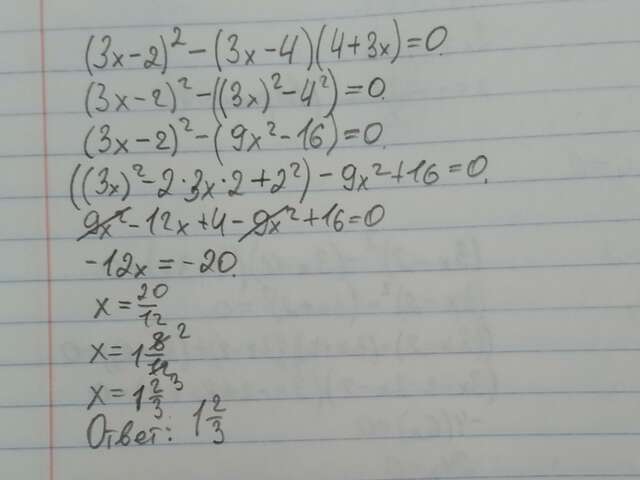 (3x-2)² - (3x-4)(4+3x)=0.
(3x-2)² - ((3x)² - 4²)=0.
(3x-2)² - (9x² - 16)=0.
((3x)² - 2·3x·2 + 2²) - 9x² + 16=0.
9x² - 12x + 4 - 9x² + 16=0
-12x = -20.
x = 20/12
x = 1 8/12 2 3
x = 1 2/3
Ответ: 1 2/3